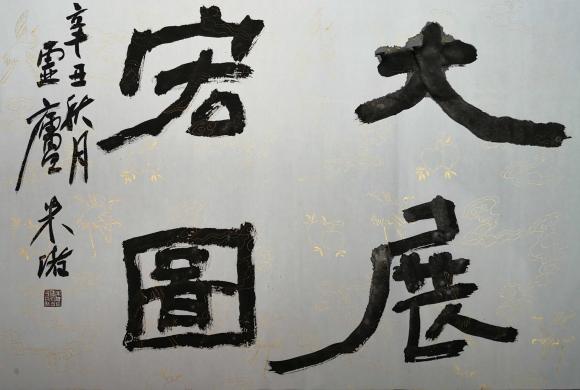 大展
宏圖
辛丑秋月
靈廬
米